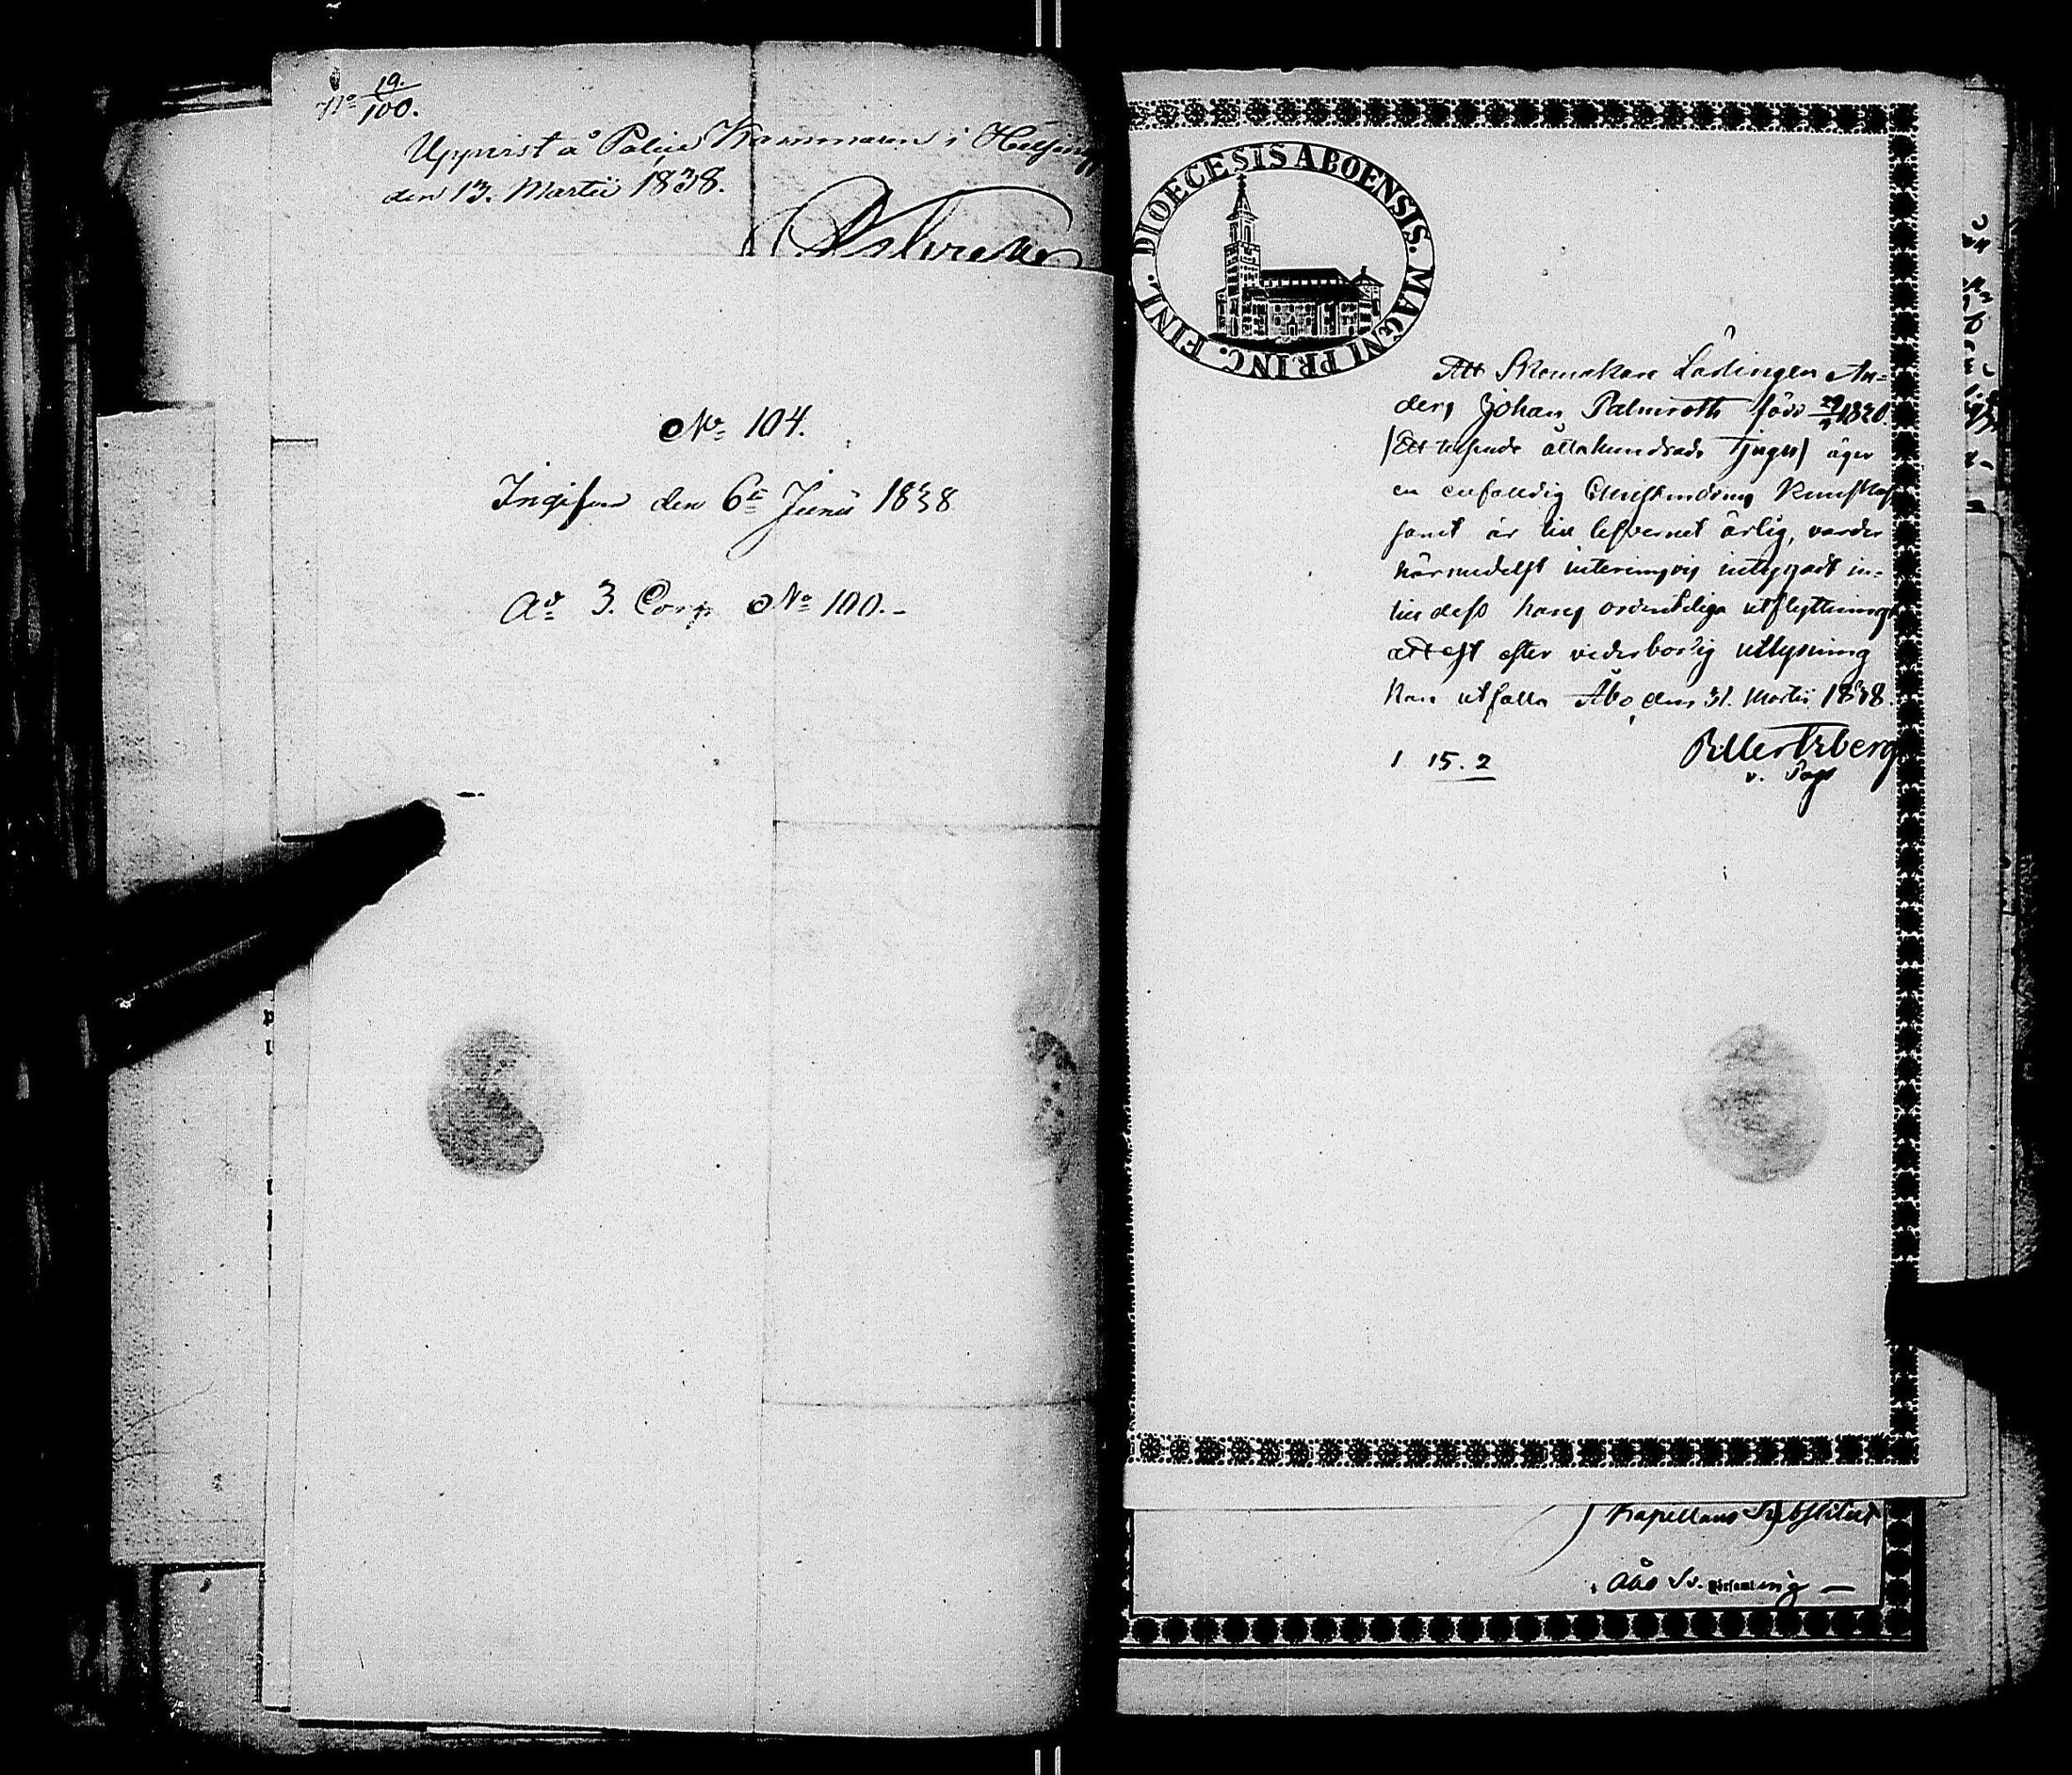 No 19./100.
Uppvist å Police Kammaren i Helsing
den 13. Martii 1838.
No 104.
Ingifven den 6te Junii 1838
Ad 3. Corp. No 100.-
DIOECESIS ABOENSIS. MAGNI PRINC. FINL.
Att Skomakare Lärlingen An=
ders Johan Palmroth född 29/4 1820.
/Ett tusende åttahundrade tjugu/ äger
en enfalldig Christendoms kunskap
samt är till lefvernet ärlig, varder
härmedelst interimsvis intygadt in=
till dess hans ordentliga utflyttnings
attest efter vederbörlig utlysning
kan utfalla Åbo den 31. Martii 1838.
1 15. 2
v. Past
Kapellans Substitut
i Åbo Sv. Församling —